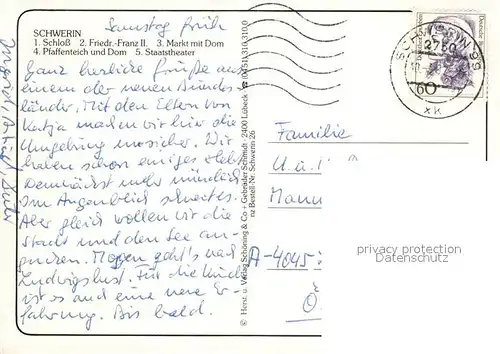 Samstag früh
SCHWERIN
1. Schloß 2. Friedr.-Franz II. 3. Markt mit Dom
4. Pfaffenteich und Dom 5. Staatstheater
Ganz herzliche Grüße aus
einem der neuen Bundes-
länder. Mit den Eltern von
Katja machen wir hier die
Umgebung unsicher. Wir
haben schon einiges
Demnächst mehr mündlich.
Im Augenblick
Aber gleich wollen wir die
Stadt und den See an-
gucken. Morgen geht's nach
Ludwigslust. Für die
ist es auch eine neue Er-
fahrung. Bis bald.
Herst. u. Verlag Schöning & Co + Gebrüder Schmidt · 2400 Lübeck (0451) 310 310 0
nz Bestell-Nr. Schwerin 26
SCHWERIN
2750
60
xk
Familie
U. u.
Mann
A-4045
Ö
privacy protection
Datenschutz